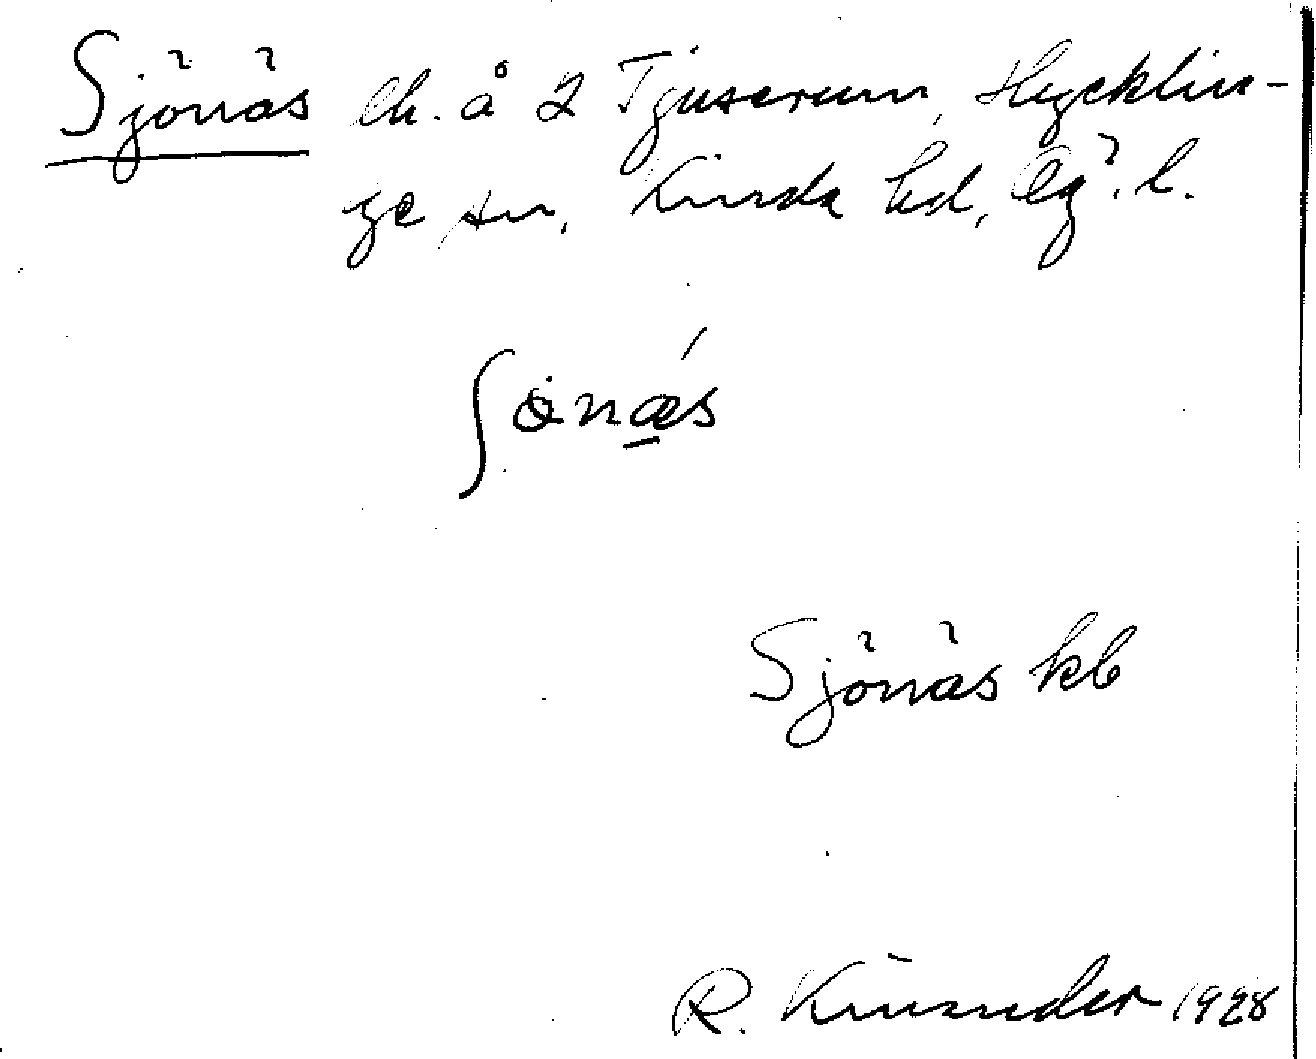 Sjönäs lh. å 2 Tjuserum, Hycklin-
ge sn, Kinda hd, Ög. l.
ʃönǽ̲s
Sjönäs kb
R. Kinander 1928